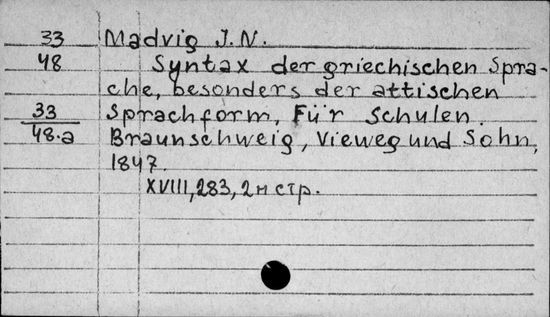 33 Madvig J. N.
48 Syntax der griechischen Spra-
che, besonders der attischen
33 Sprachform, Für Schulen.
48.a Braunschweig, Vieweg und Sohn,
1847.
XVIII, 283, 2 н стр.